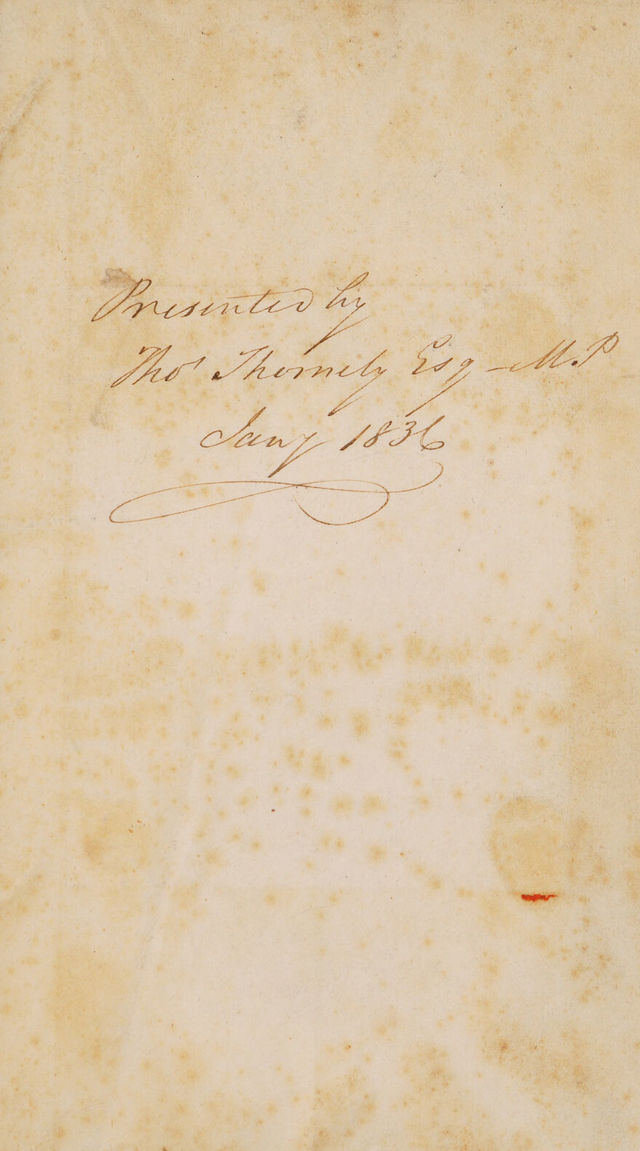 Presented by
Thos Thornely Esq - M.P
Jany 1836